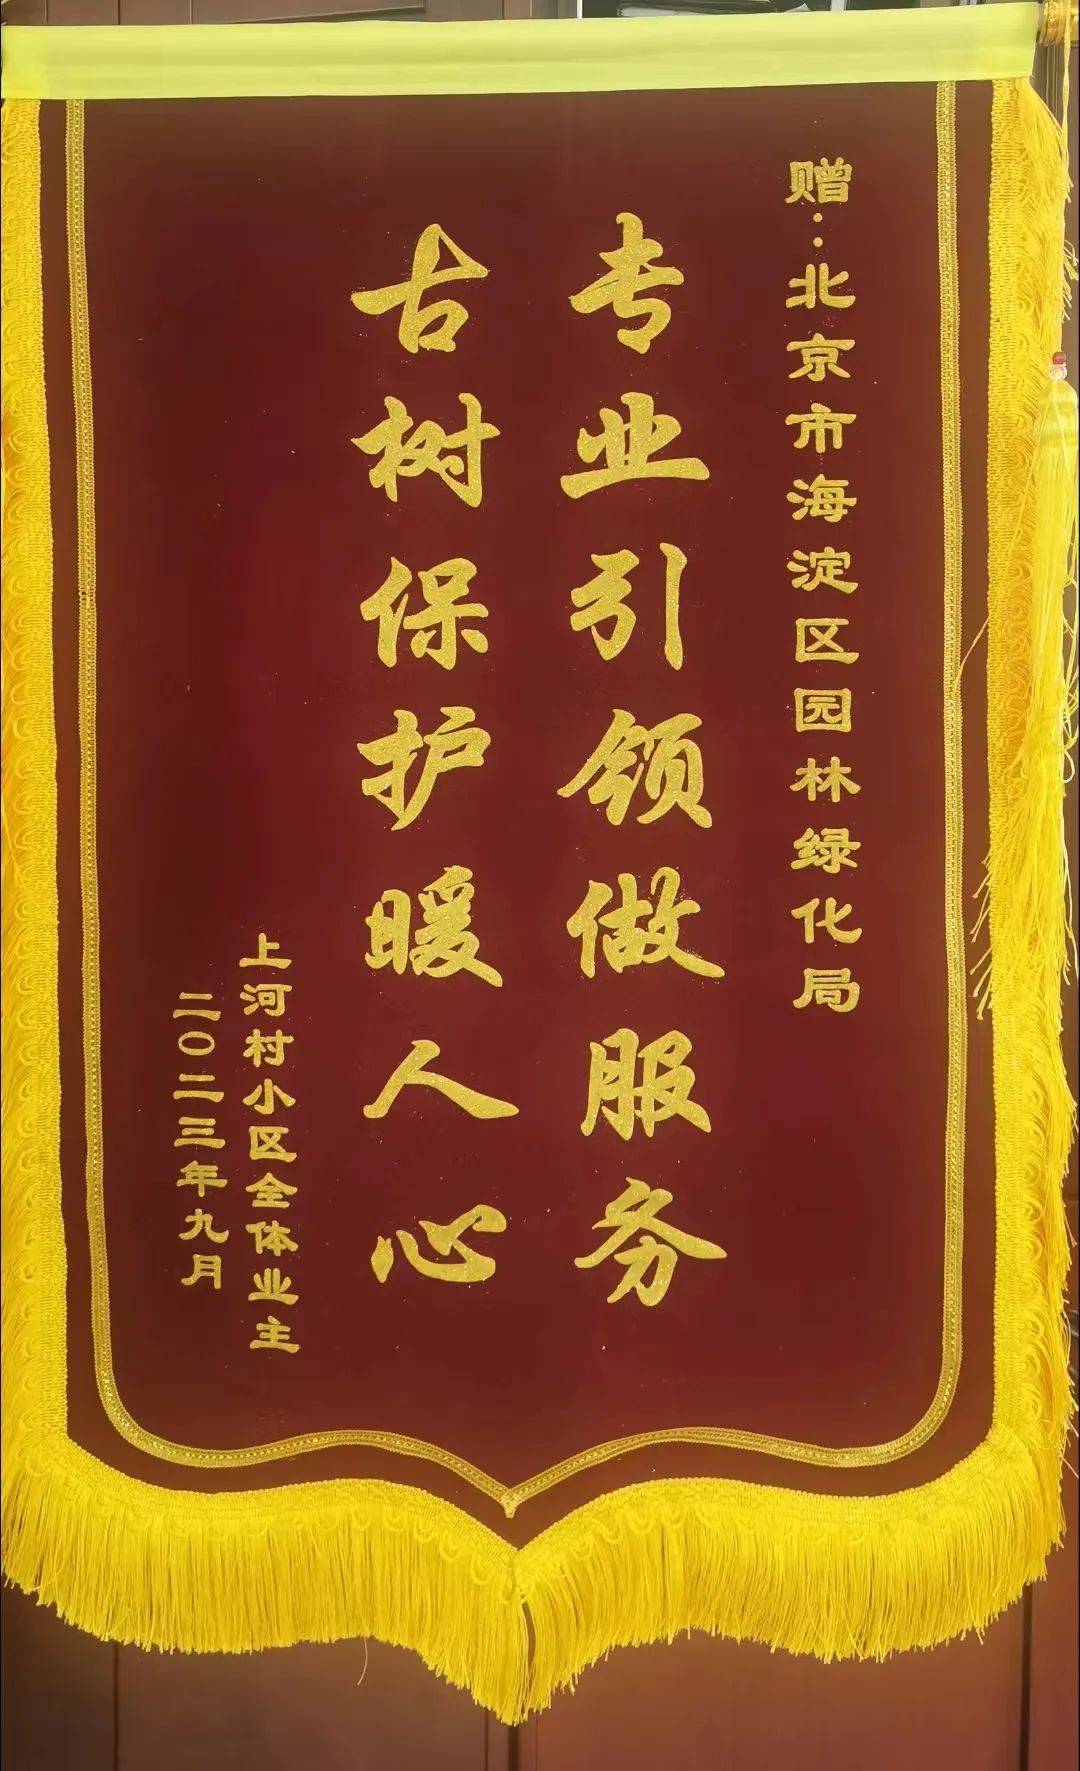 赠：北京市海淀区园林绿化局
专业引领做服务
古树保护暖人心
上河村小区全体业主
二〇二三年九月